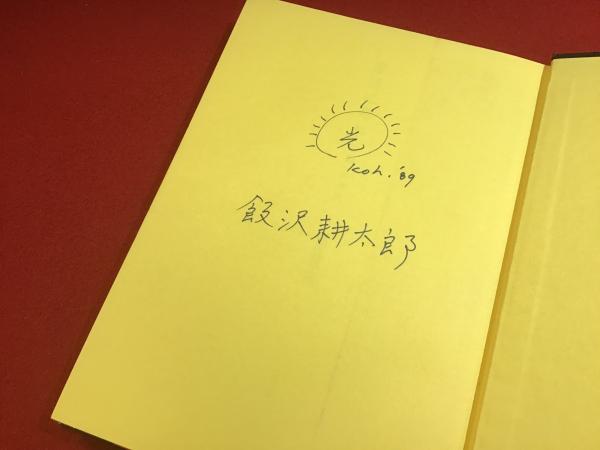 光
Koh. '89
飯沢耕太郎